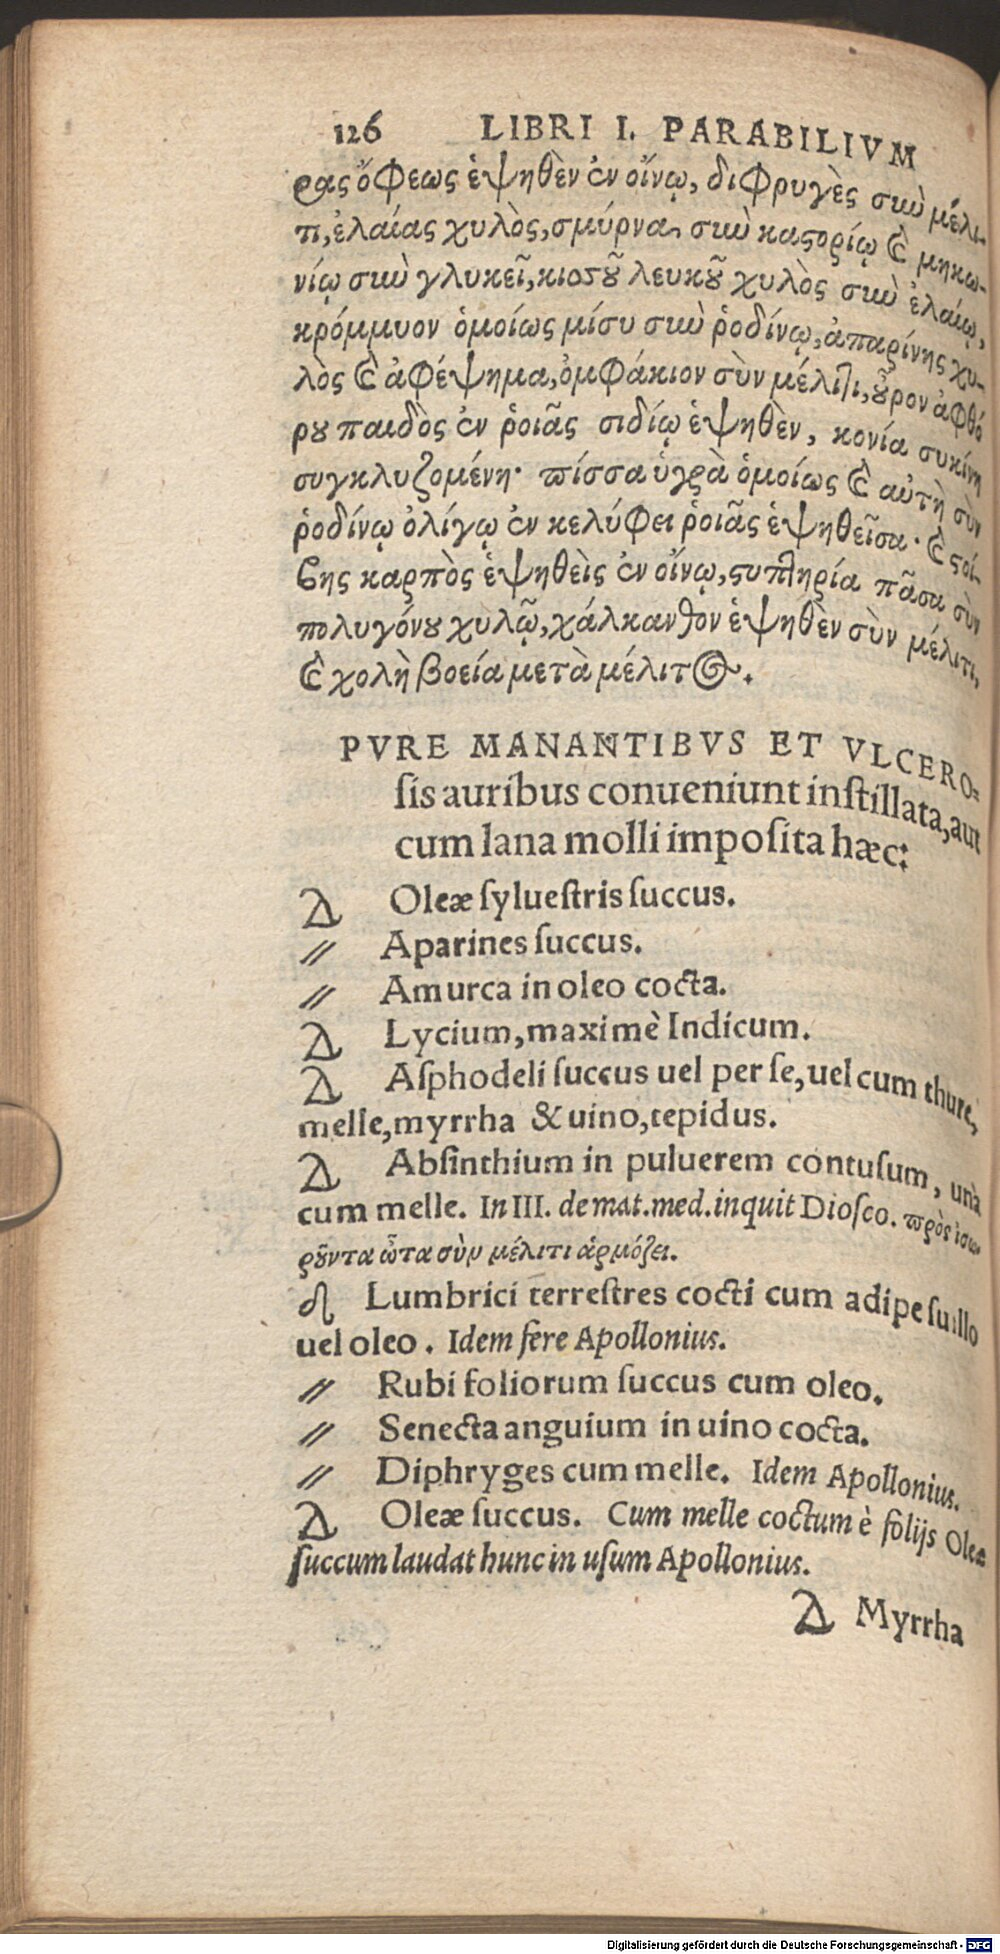 126 LIBRI I. PARABILIVM
ρας ὄφεως ἑψηθὲν ἐν οἴνῳ, διφρυγὲς σὺν μέλι-
τι, ἐλαίας χυλὸς, σμύρνα σὺν καστορίῳ καὶ μηκω-
νίῳ σὺν γλυκεῖ, κισσοῦ λευκοῦ χυλὸς σὺν ἐλαίῳ,
κρόμμυον ὁμοίως μίσυ σὺν ῥοδίνῳ, ἀπαρίνης χυ-
λὸς καὶ ἀφέψημα, ὀμφάκιον σὺν μέλιτι, οὖρον ἀφθό
ρου παιδὸς ἐν ῥοιᾶς σιδίῳ ἑψηθὲν, κονία συκίνη
συγκλυζομένη· πίσσα ὑγρὰ ὁμοίως καὶ αὐτὴ σὺν
ῥοδίνῳ ὀλίγῳ ἐν κελύφει ῥοιᾶς ἑψηθεῖσα· καὶ στοί-
βης καρπὸς ἑψηθεὶς ἐν οἴνῳ, στυπτηρία πᾶσα σὺν
πολυγόνου χυλῷ, χάλκανθον ἑψηθὲν σὺν μέλιτι,
καὶ χολὴ βοεία μετὰ μέλιτος.
PVRE MANANTIBVS ET VLCERO=
ſis auribus conueniunt inſtillata, aut
cum lana molli impoſita hæc:
Δ Oleæ ſylueſtris ſuccus.
// Aparines ſuccus.
// Amurca in oleo cocta.
Δ Lycium, maximè Indicum.
Δ Aſphodeli ſuccus uel per ſe, uel cum thure,
melle, myrrha & uino, tepidus.
Δ Abſinthium in puluerem contuſum, unà
cum melle. In III. de mat. med. inquit Dioſco. πρὸς
ροῦντα ὦτα σὺν μέλιτι ἁρμόζει.
Lumbrici terreſtres cocti cum adipe ſuillo
uel oleo. Idem fere Apollonius.
// Rubi foliorum ſuccus cum oleo.
// Senecta anguium in uino cocta.
// Diphryges cum melle. Idem Apollonius.
Δ Oleæ ſuccus. Cum melle coctum è folijs Oleæ
ſuccum laudat hunc in uſum Apollonius.
Δ Myrrha
Digitalisierung gefördert durch die Deutsche Forschungsgemeinschaft - DFG